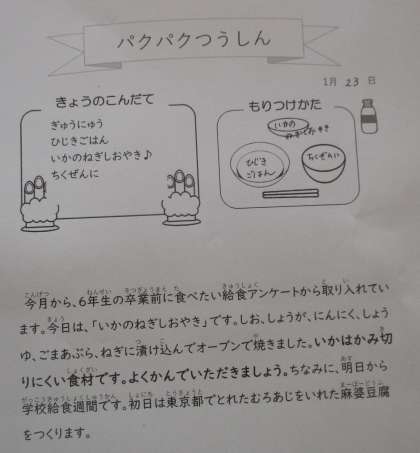 パクパクつうしん
1月 23 日
きょうのこんだて
ぎゅうにゅう
ひじきごはん
いかのねぎしおやき♪
ちくぜんに
もりつけかた
いかの
ねぎしおやき
ひじき
ごはん
ちくぜんに
今月から、6年生の卒業前に食べたい給食アンケートから取り入れてい
ます。今日は、「いかのねぎしおやき」です。しお、しょうが、にんにく、しょう
ゆ、ごまあぶら、ねぎに漬け込んでオーブンで焼きました。いかはかみ切
りにくい食材です。よくかんでいただきましょう。ちなみに、明日から
学校給食週間です。初日は東京都でとれたむろあじをいれた麻婆豆腐
をつくります。